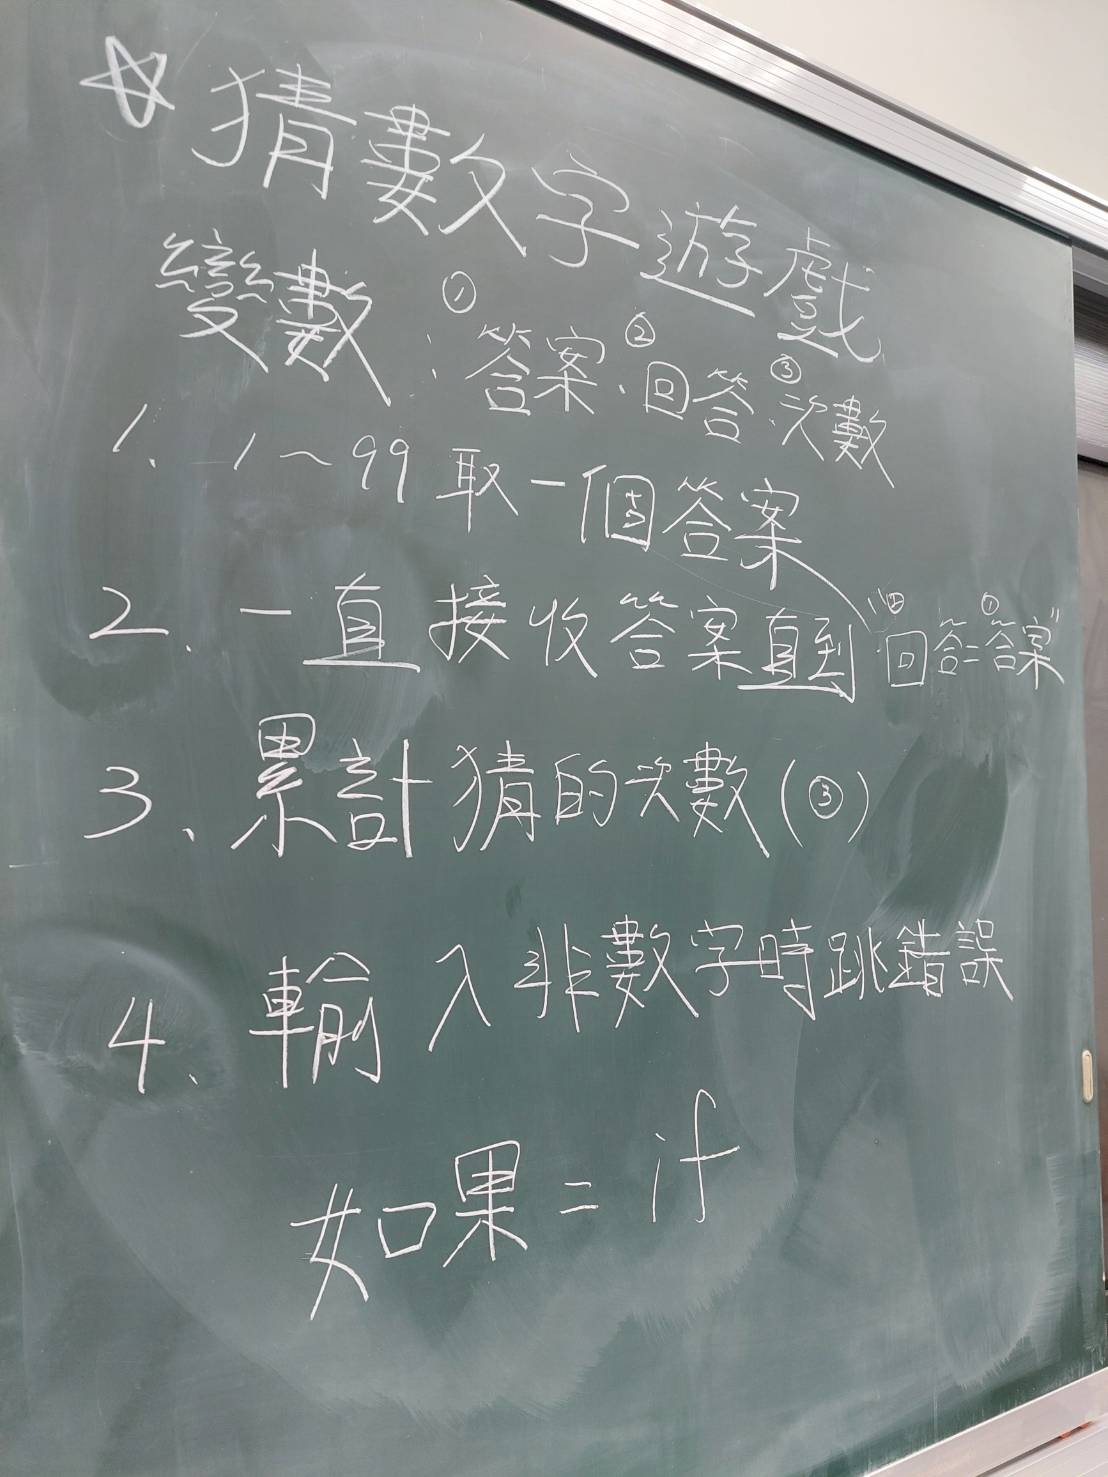 ☆猜數字遊戲
變數：①答案、②回答、③次數
1、1～99取一個答案
2、一直接收答案直到"②回答=①答案"
3、累計猜的次數(③)
4、輸入非數字時跳錯誤
如果=if